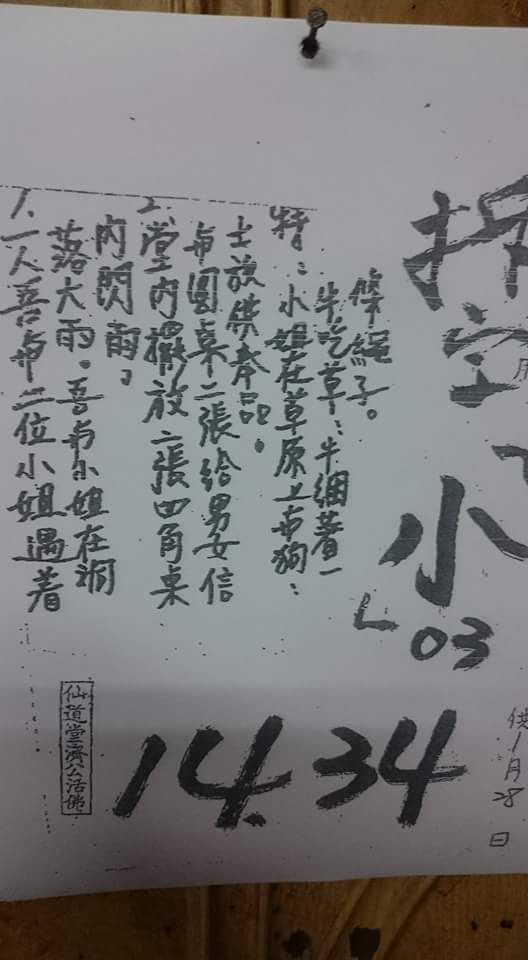 1.一人吾与二位小姐遇着
落大雨。吾与小姐在洞
內閃雨。
2.堂內擺放二張四角桌
与圓桌二張給男女信
士放供奉品。
特:小姐在草原上与狗;
牛吃草;牛綑著一
條繩子。
小
03
14.34
仙道堂濟公活佛
供1月28日